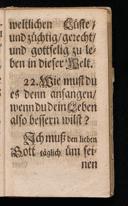 weltlichen Lüste/
und züchtig/gerecht/
und gottselig zu le-
ben in dieser Welt.
22. Wie must du
es denn anfangen/
wenn du dein Leben
also bessern wilst?
Ich muß den lieben
Gott täglich üm sei-
nen